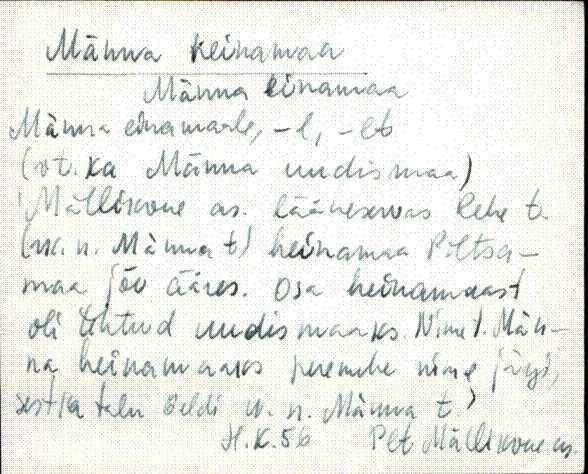 Männa heinamaa
Männa einamaa
Männa einamaale, -l, -lt
(vt. ka Männa uudismaa)
Mällikvere as. lääneservas Lehe t.
(m. n. Männa t) heinamaa Põltsa-
maa jõe ääres. Osa heinamaast
oli tehtud uudismaaks. Nimet. Män-
na heinamaaks peremehe nime järgi,
sest ka talu öeldi m. n. Männa t.)
H.K. 56 Plt Mällikvere as.